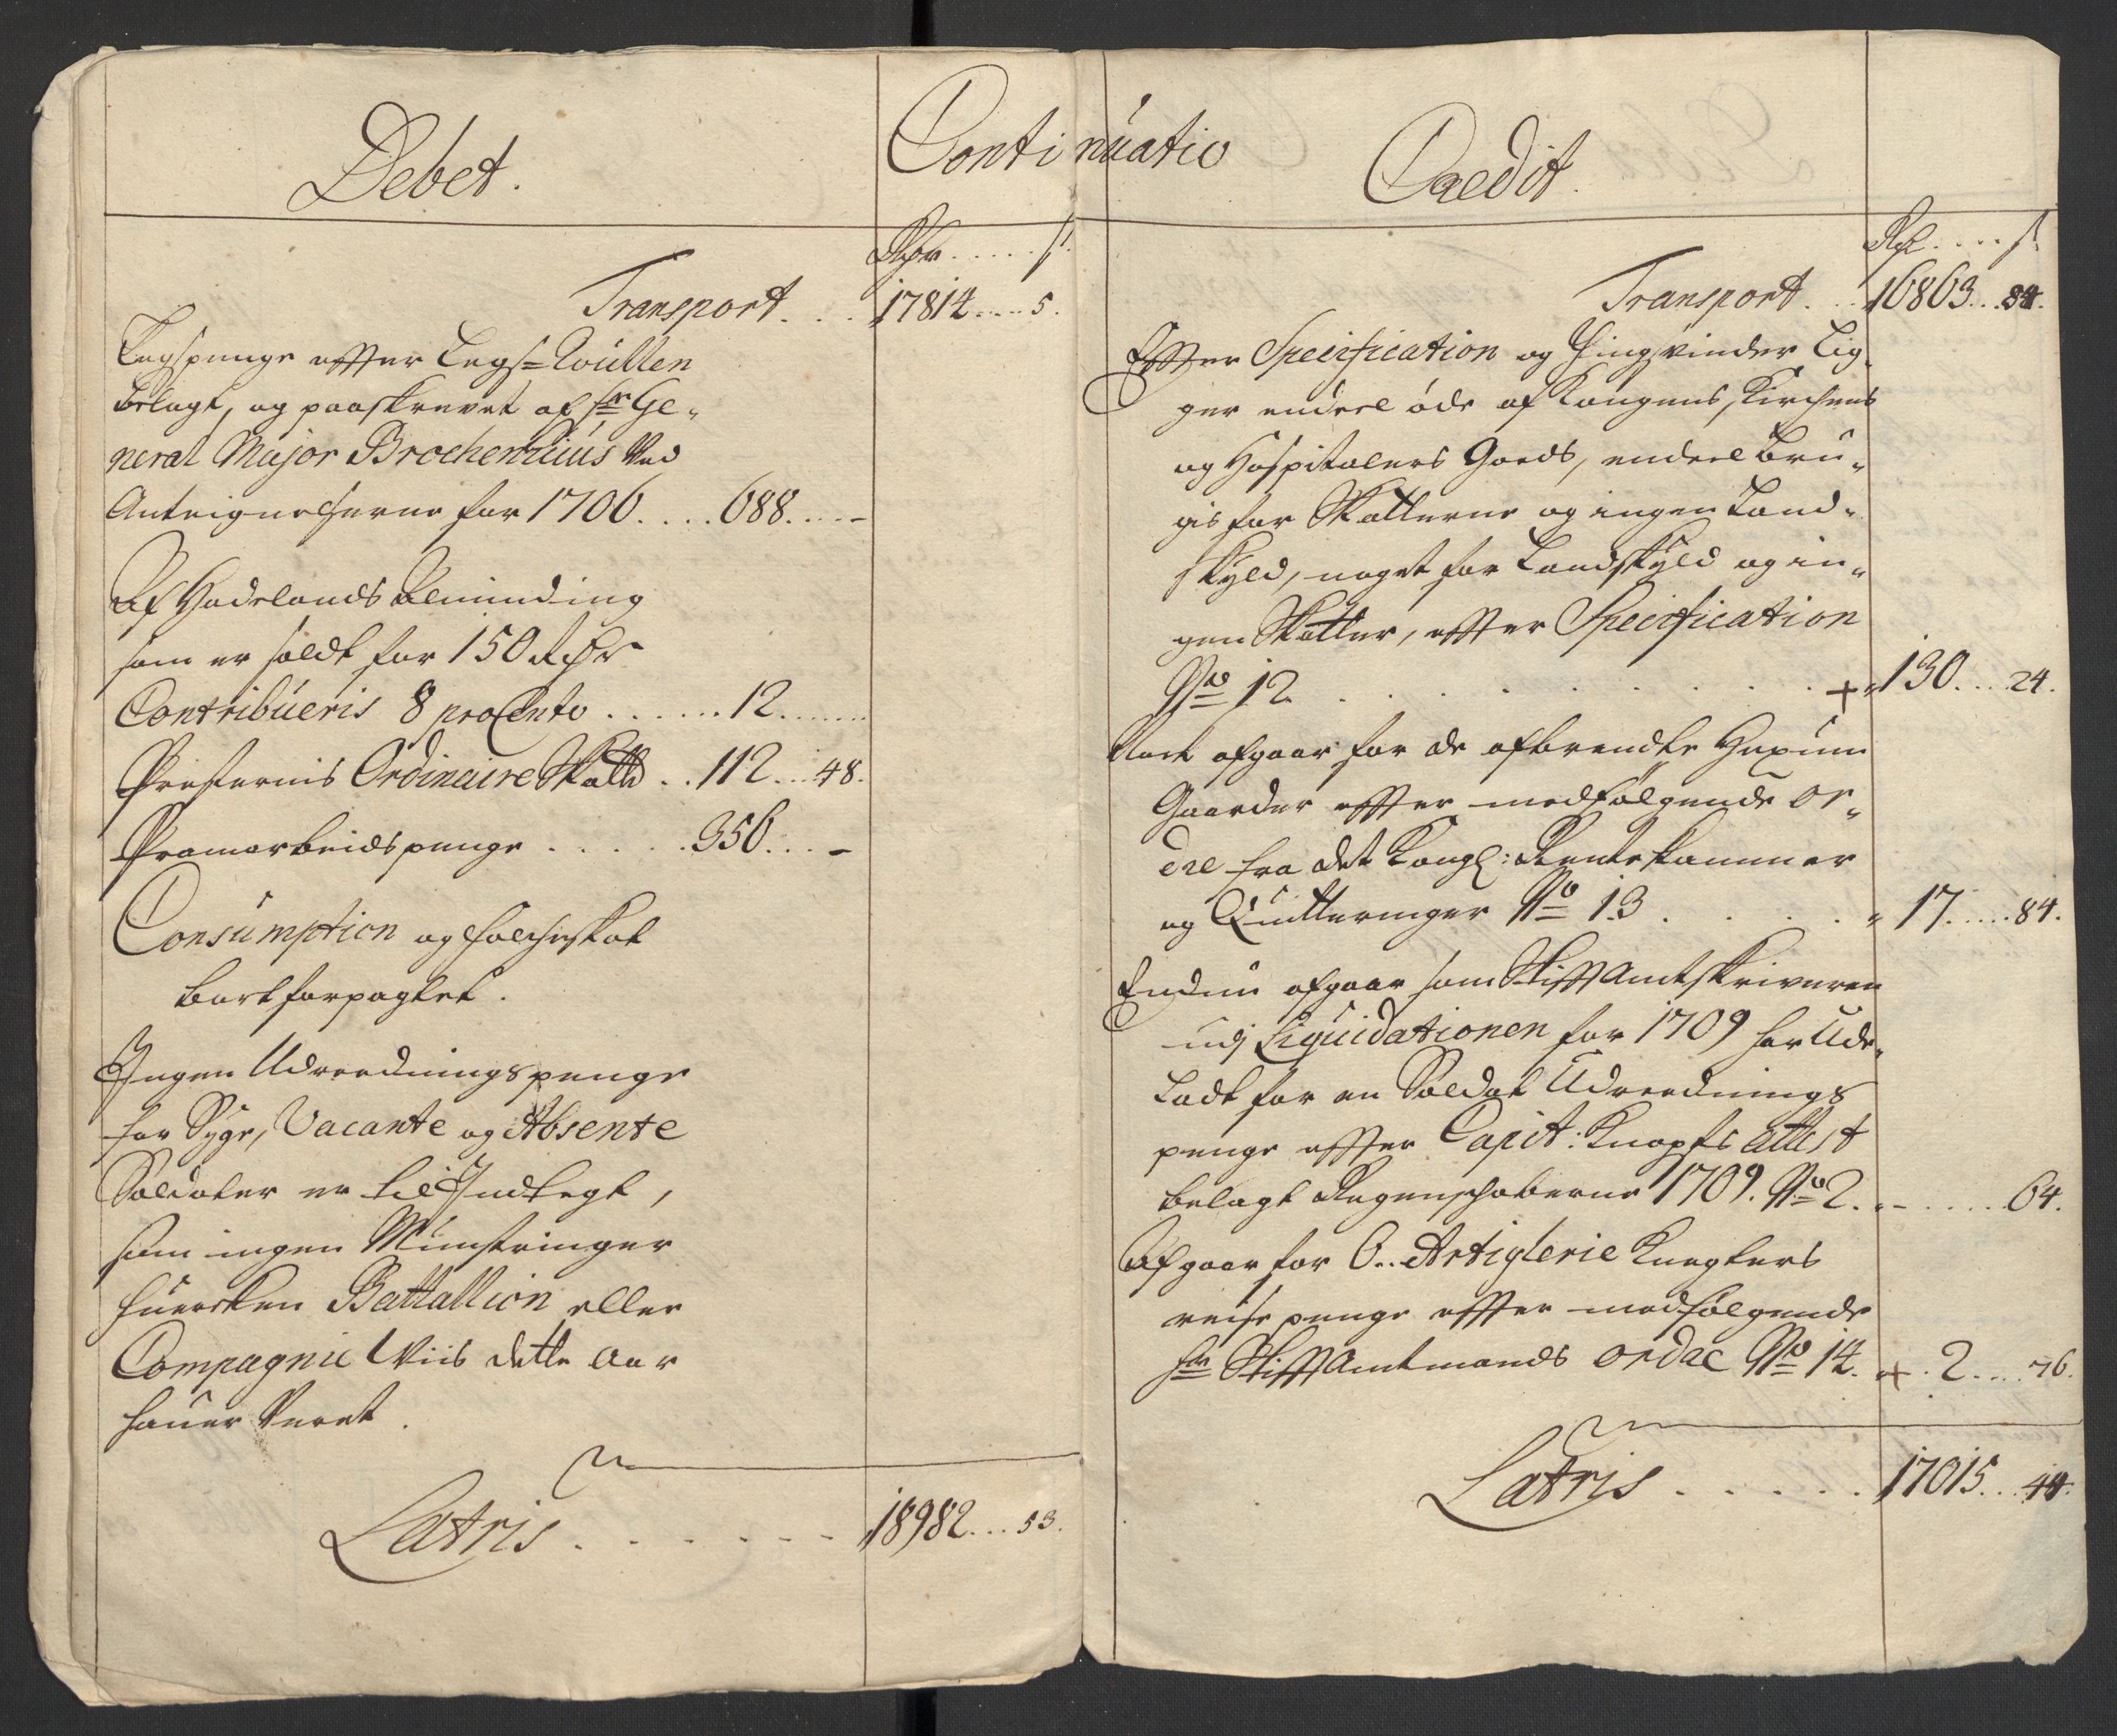 Debet.
Continuatio
Rdr ..... s.
Transport ... 17814 .... 5.
Legspenge efter Legs=Roullen
belagt, og paaskrevet af hr Ge„
neral Major Brochenhuus ved
Anteignelserne for 1706 .... 688 .... -
Af Hadelands Alminding
som er soldt for 150 Rdr
Contribueris 8 procento ...... 12 ......
Presternis Ordinaire Skatt .. 112 ... 48.
Pramarbeids penge ..... 356 ... -
Consumption og Folcheskat
bortforpagtet.
Ingen Udreednings penge
for Syge, Vacante og Absente
Soldater er til Indtegt,
som ingen Münstringer
huercken Battallion eller
Compagnie Viis dette Aar
hauer veret.
Latris ...... 18982 ... 53.
Credit.
Rd .... s.
Transport ... 16863 .. 84.
Efter Specification og Tingsvinder Lig„
ger endeel øde af Kongens, Kirchens
og Hospitalens Goeds, endeel bru„
gis for Skatterne og ingen Land„
skyld, noget for Landskyld og in„
gen Skatter, efter Specification
No 12 ......... + 130 ... 24.
Noch afgaar for de afbrendte Hexum
Gaarder efter medfølgende or„
dre fra det Kongl: Rentekammer
og Quitteringer No 13 .... 17 .... 84.
Endnu afgaar som Stiftamtskriveren
udj Liquidationen for 1709 har Ude„
ladt for en Soldat Udreednings
penge efter Capit: Knopfs attest
belagt Regenschaberne 1709. No 2. - ..... 64.
Afgaar for 6.. Artiglerie Knegters
reise penge efter medfølgende
hr Stiftamtmands ordre No 14. + . 2 .... 76.
Latris ..... 17015 .. 44.